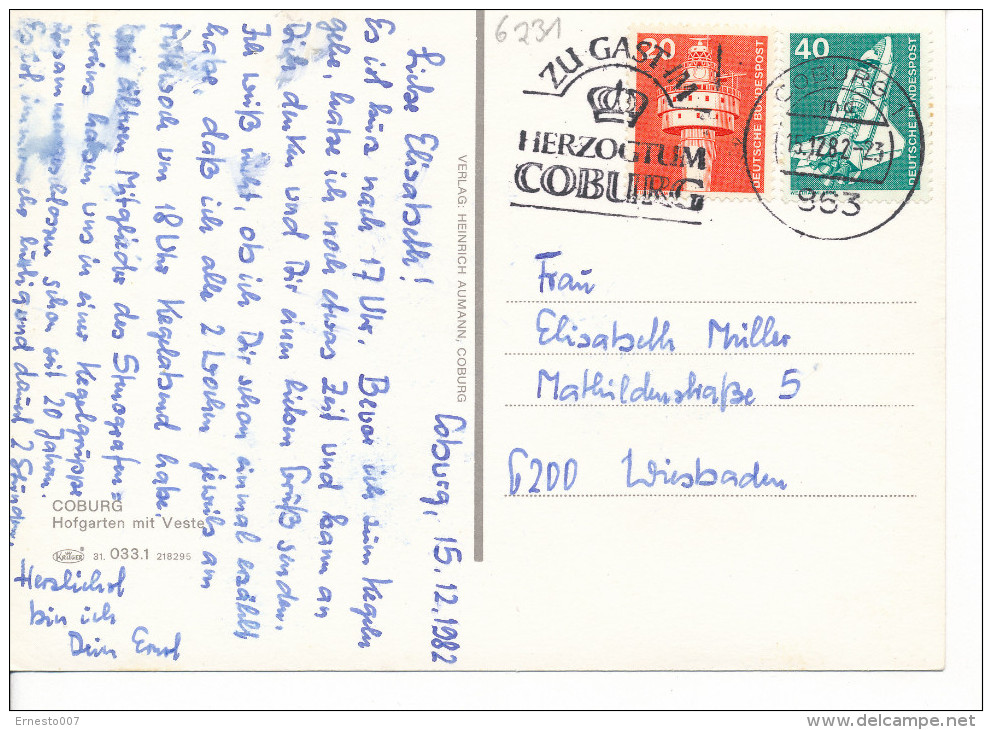 Coburg, 15.12.1982
Liebe Elisabeth!
Es ist kurz nach 17 Uhr. Bevor ich zum Kegeln
gehe, habe ich noch etwas Zeit und kann an
Dich denken und Dir einen lieben Gruß senden.
Ich weiß nicht, ob ich Dir schon einmal erzählt
habe, daß ich alle 2 Wochen jeweils am
Mittwoch um 18 Uhr Kegelabend habe.
Wir älteren Mitglieder des Stenografen=
vereins haben uns in einer Kegelgruppe
zusammengeschlossen schon seit 20 Jahren.
Es ist immer sehr lustig und dauert 2 Stunden.
Herzlichst
bin ich
Dein Ernst
COBURG
Hofgarten mit Veste
KRÜGER 31. 033.1 218295
VERLAG: HEINRICH AUMANN, COBURG
6231
ZU GAST IM
HERZOGTUM
COBURG
20
DEUTSCHE BUNDESPOST
40
DEUTSCHE BUNDESPOST
COBURG 1
mc
15.12.82-23
863
Frau
Elisabeth Müller
Mathildenstraße 5
6200 Wiesbaden
Ernesto007
delcampe.net